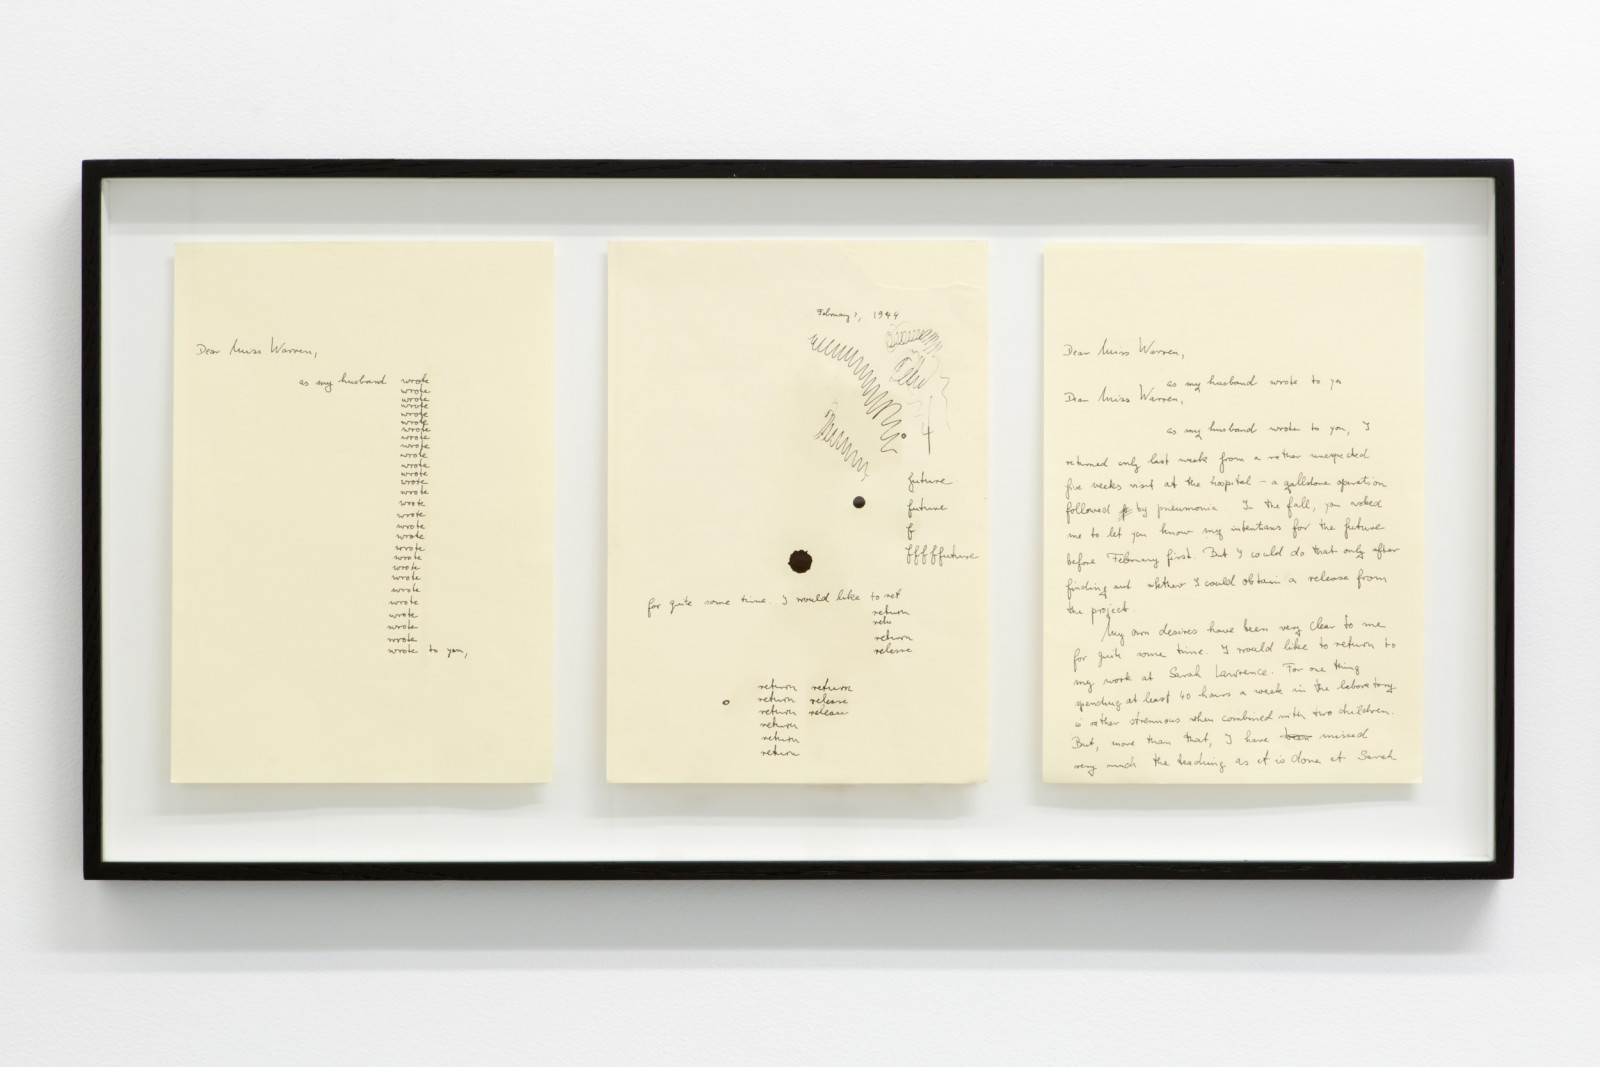 Dear Miss Warren,
as my husband wrote
wrote
wrote
wrote
wrote
wrote
wrote
wrote
wrote
wrote
wrote
wrote
wrote
wrote
wrote
wrote
wrote
wrote
wrote
wrote
wrote
wrote
wrote
wrote
wrote
wrote
wrote to you,
February 1, 1944
4
future
future
f
fffffuture
for quite some time. I would like to ret
return
retu
return
release
return return
return release
return release
return
return
return
Dear Miss Warren,
as my husband wrote to yo
Dear Miss Warren,
as my husband wrote to you, I
returned only last week from a rather unexpected
five weeks visit at the hospital – a gallstone operation
followed by pneumonia. In the fall, you asked
me to let you know my intentions for the future
before February first. But I could do that only after
finding out whether I could obtain a release from
the project.
My own desires have been very clear to me
for quite some time. I would like to return to
my work at Sarah Lawrence. For one thing
spending at least 40 hours a week in the laboratory
is rather strenuous when combined with two children.
But, more than that, I have been missed
very much the teaching as it is done at Sarah